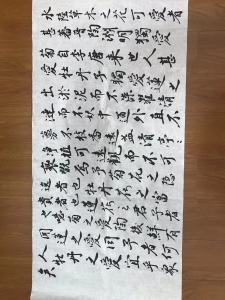 水陸草木之花可愛者
甚蕃晉陶淵明獨愛
菊自李唐來世人
愛牡丹予獨愛蓮之
出淤泥而不染濯清
漣而不妖中通外直不
蔓不枝香遠益清亭
淨植可遠觀而不可
焉予謂菊花之隱
逸者也牡丹花之富
貴者也蓮花之君子者
也噫菊之愛陶後鮮有
聞蓮之愛同予者何
人牡丹之愛宜乎眾
矣